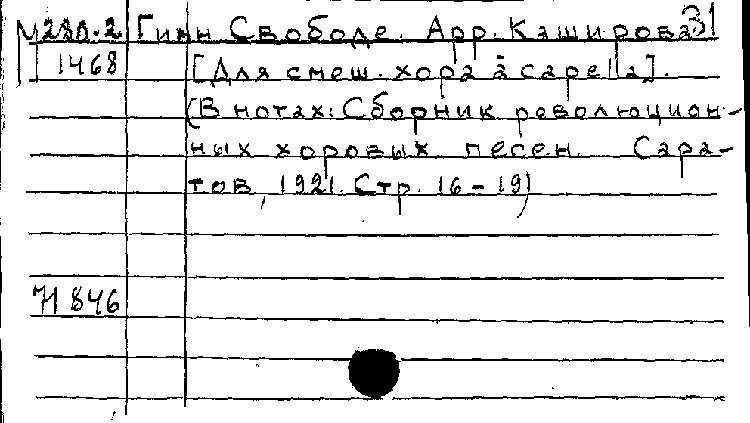 М280.2 Гимн Свободе. Арр. Каширова 31
1468 [Для смеш. хора а̀ capella].
(В нотах: Сборник революцион-
ных хоровых песен. Сара-
тов, 1921. Стр. 16-19)
71846